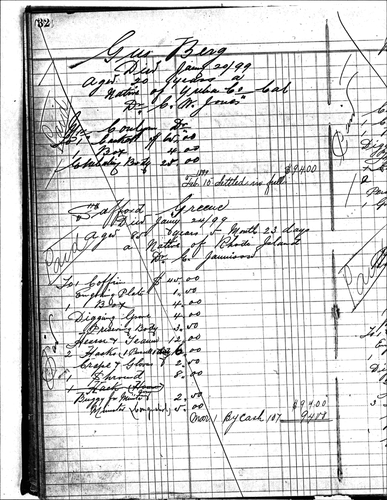 32
Gus Berg
Died Jany 20/99
Aged 20 years a
Native of Yuba Co Cal
Dr. C. W. Jones
Paid
Coulyn Dr
To 1 Casket 65.00
1 Box 4.00
25.00
$94.00
1899
Feb 15 Settled in full
Safford Greene
Died Jany 24/99
Aged 80 years 5 Month 23 days
a Native of Rhode Island
Dr. C. Jamison
Paid
To 1 Coffin $45.00
Engraving Plate 1.50
1 Box 4.00
Digging Grave 4.00
Preserving Body
Hearse & Team 12.00
2 Hacks 6.00
Crape & Gloves 2.50
1 Shroud 8.00
1 Hack
Buggy for Minister 2.50
Minister 5.00
$94.00
Mar 1 By Cash 187